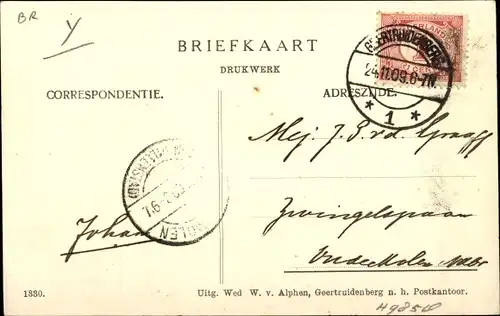 BR
Y
BRIEFKAART
DRUKWERK
CORRESPONDENTIE.
ADRESZIJDE.
GEERTRUIDENBERG
24.11.09.6-7N.
* 1 *
Mej. J. P. v d. Graaff
Zwingelspaan
Johan
1330.
Uitg. Wed W. v. Alphen, Geertruidenberg n. h. Postkantoor.